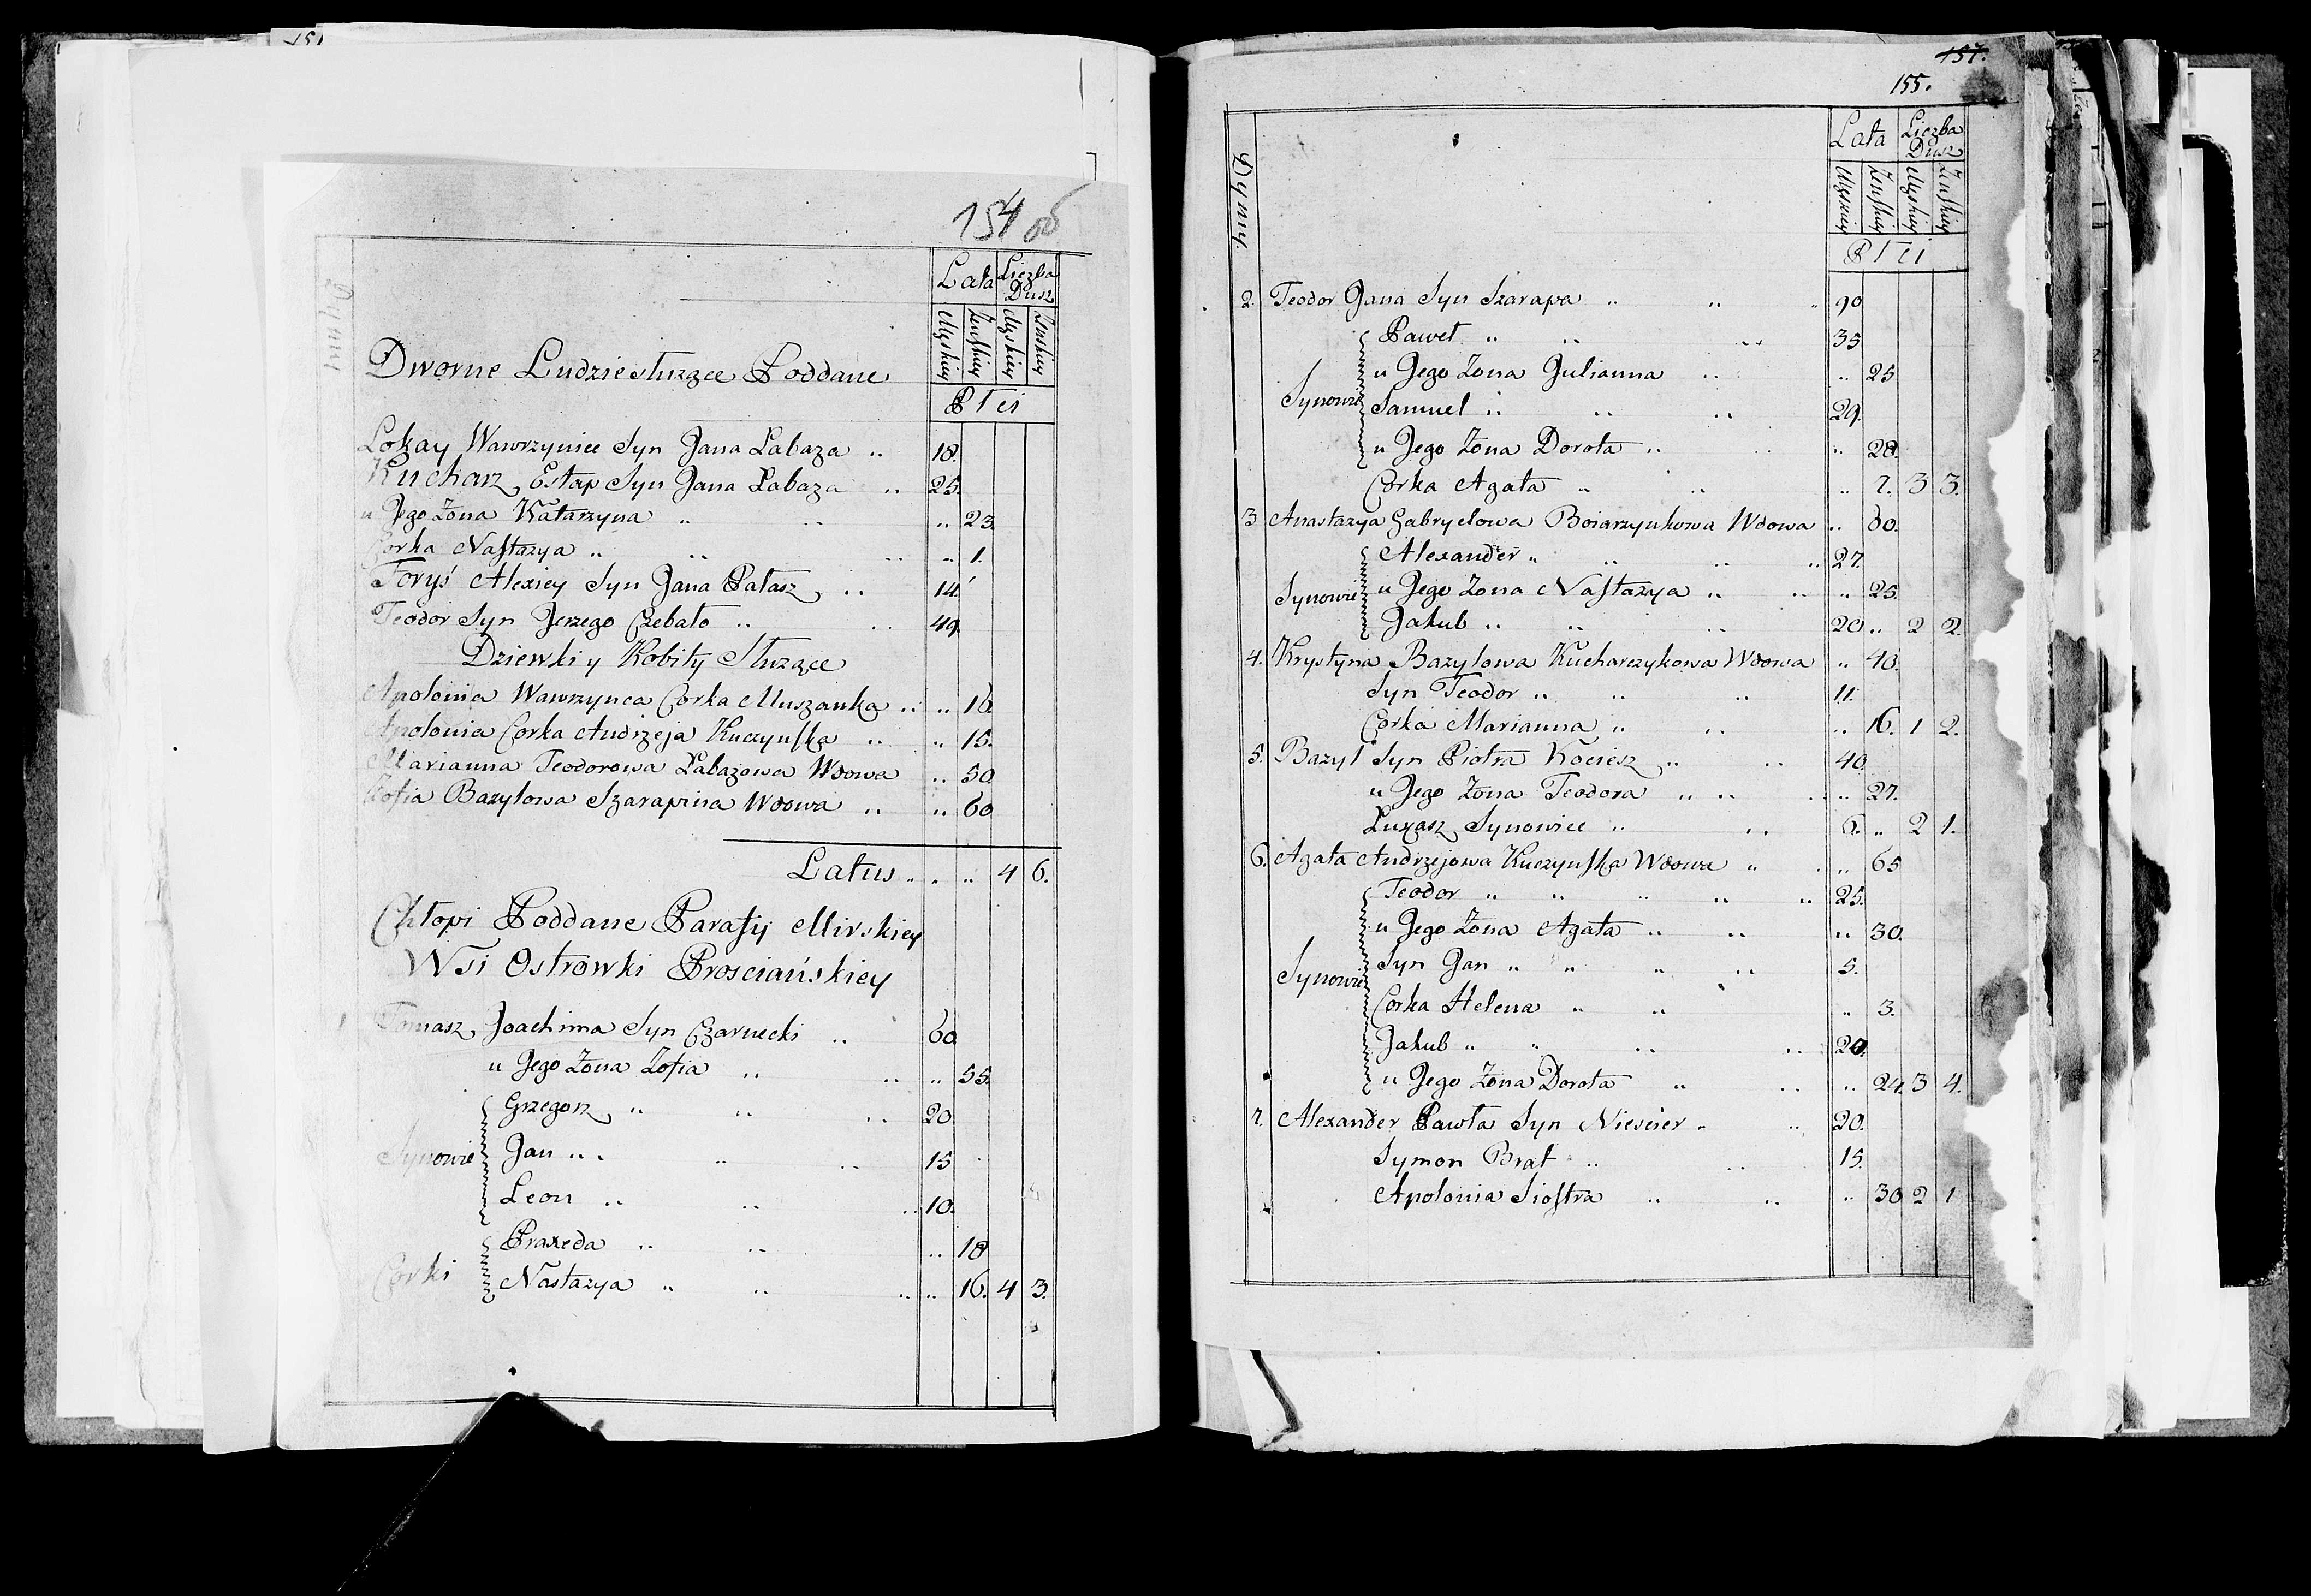 151
154 об
Dymy
Lata Liczba Dusz
Męskiey Żeńskiey Męskiey Żeńskiey
Płci
Dworne Ludzie słuzące Poddane
Lokay Wawrzyniec Syn Jana Łabaza „ 18.
Kucharz Estap Syn Jana Łabaza „ 25.
u Jego Żona Katarzyna „ „ „ 23.
Corka Nastazya „ „ „ „ 1.
Foryś Alexiey Syn Jana Pałasz „ 14.
Teodor Syn Jerzego Czebato „ „ 49.
Dziewki y Kobity Służące
Apolonia Wawrzynca Corka Muszanka „ „ 16.
Apolonia Corka Andrzeja Kuczynska „ „ 15.
Marianna Teodorowa Łabazowa Wdowa „ 50.
Zofia Bazylowa Szarapina Wdowa „ „ 60
Latus „ „ „ 4 6.
Chłopi Poddane Parafij Mirskiey
Wsi Ostrowki Prosciańskiey
1 Tomasz Joachima Syn Czarnecki „ 60.
u Jego Żona Zofia „ „ „ 55.
Synowie
Grzegorz „ „ „ 20.
Jan „ „ „ 15
Leon „ „ „ 10.
Corki
Praxeda „ „ „ 18
Nastazya „ „ „ „ 16. 4 3.
157.
155.
Dymy
Lata Liczba Dusz
Męskiey Żeńskiey Męskiey Żeńskiey
Płci
2. Teodor Jana Syn Szarapa „ „ „ 90
Synowie
Paweł „ „ „ 35
u Jego Żona Julianna „ „ 25
Samuel „ „ „ 29.
u Jego Żona Dorota „ „ „ 28.
Corka Agata „ „ „ 7. 3 3.
3 Anastazya Gabryelowa Boiarzynkowa Wdowa „ 60.
Synowie
Alexander „ „ „ „ 27.
u Jego Żona Nastazya „ „ „ 25.
Jakub „ „ „ 20 „ 2 2.
4. Krystyna Bazylowa Kucharczykowa Wdowa „ 40.
Syn Teodor „ „ „ 11.
Corka Marianna „ „ „ 16. 1 2.
5. Bazyl Syn Piotra Kociesz „ „ 40.
u Jego Żona Teodora „ „ „ „ 27.
Łukasz Synowiec „ „ 6. „ 2 1.
6. Agata Andrzejowa Kuczynska Wdowa „ „ 65
Synowie
Teodor „ „ „ „ „ 25.
u Jego Żona Agata „ „ „ 30.
Syn Jan „ „ „ „ 5.
Corka Helena „ „ „ 3.
Jakub „ „ „ „ 20.
u Jego Żona Dorota „ „ „ 24. 3 4.
7. Alexander Pawła Syn Niescier „ „ 20.
Symon Brat „ „ 15.
Apolonia Siostra „ „ „ 30 2 1